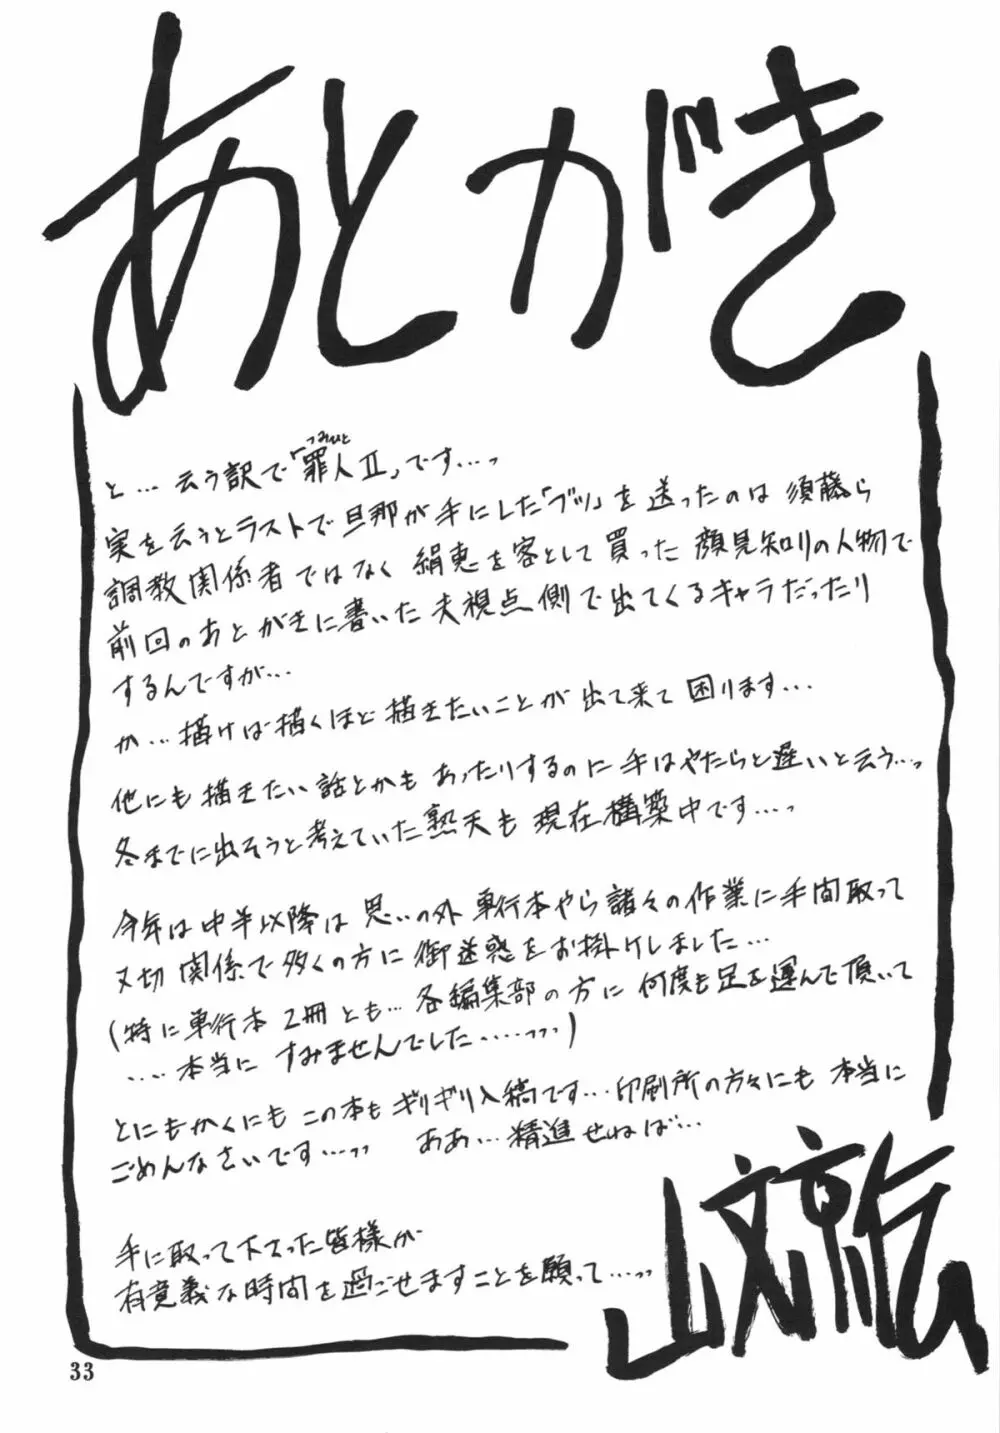 あとがき
と…云う訳で「罪人Ⅱ」です…っ
つみひと
実を云うとラストで旦那が手にした「ブツ」を送ったのは須藤ら
調教関係者ではなく絹恵を客として買った顔見知りの人物で
前回のあとがきに書いた夫視点側で出てくるキャラだったり
するんですが…
か…描けば描くほど描きたいことが出て来て困ります…
他にも描きたい話とかもあったりするのに手はやたらと遅いと云う…っ
冬までに出そうと考えていた熟天も現在構築中です…っ
今年は中半以降は思いの外単行本やら諸々の作業に手間取って
〆切関係で多くの方に御迷惑をお掛けしました…
(特に単行本2冊とも…各編集部の方に何度も足を運んで頂いて
‥‥本当にすみませんでした……ううっ)
とにもかくにもこの本もギリギリ入稿です…印刷所の方々にも本当に
ごめんなさいです…っっ ああ…精進せねば…
手に取って下さった皆様が
有意義な時間を過ごせますことを願って…っっ
山文京伝
33